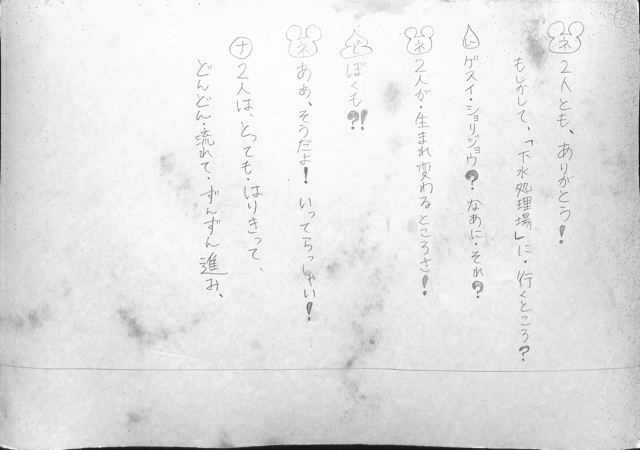 ネ 2人とも、ありがとう!
もしかして、「下水処理場」に・行くところ?
に ゲスイ・ショリジョウ? なあに・それ?
ネ 2人が・生まれ変わるところさ!
ど ぼくも?!
ネ ああ、そうだよ! いってらっしゃい!
ナ 2人は、とっても・はりきって、
どんどん・流れて・ずんずん進み、